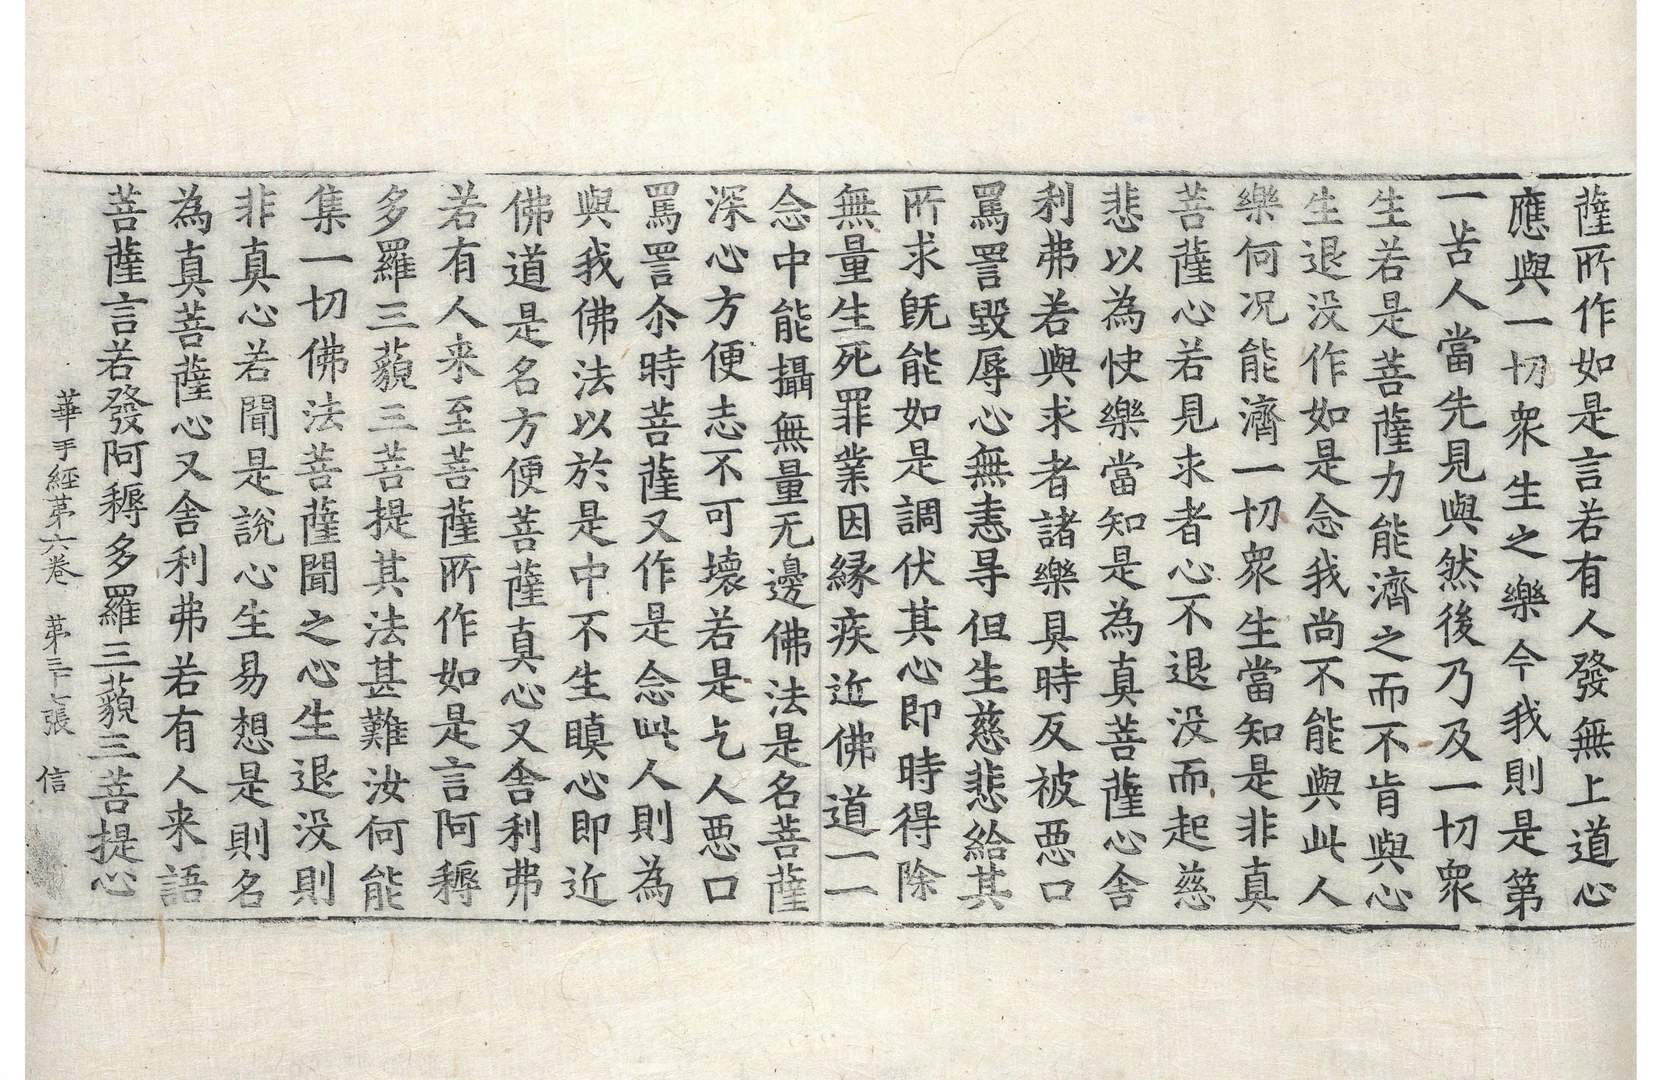 薩所作如是言若有人發無上道心
應與一切衆生之樂今我則是第
一苦人當先見與然後乃及一切衆
生若是菩薩力能濟之而不肯與心
生退没作如是念我尚不能與此人
樂何况能濟一切衆生當知是非真
菩薩心若見求者心不退没而起慈
悲以為快樂當知是為真菩薩心舍
利弗若與求者諸樂具時反被惡口
罵詈毀辱心無恚㝵但生慈悲給其
所求旣能如是調伏其心即時得除
無量生死罪業因緣疾近佛道一一
念中能攝無量无邊佛法是名菩薩
深心方便志不可壞若是乞人惡口
罵詈尒時菩薩又作是念此人則為
與我佛法以於是中不生瞋心即近
佛道是名方便菩薩真心又舍利弗
若有人来至菩薩所作如是言阿耨
多羅三藐三菩提其法甚難汝何能
集一切佛法菩薩聞之心生退没則
非真心若聞是說心生易想是則名
為真菩薩心又舍利弗若有人来語
菩薩言若發阿耨多羅三藐三菩提心
華手經第六卷　第三十七張　信